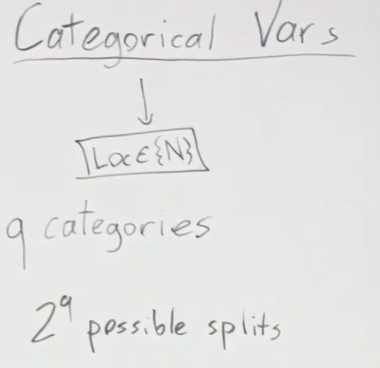 Categorical Vars
Loc∈{N}
q categories
2^q possible splits